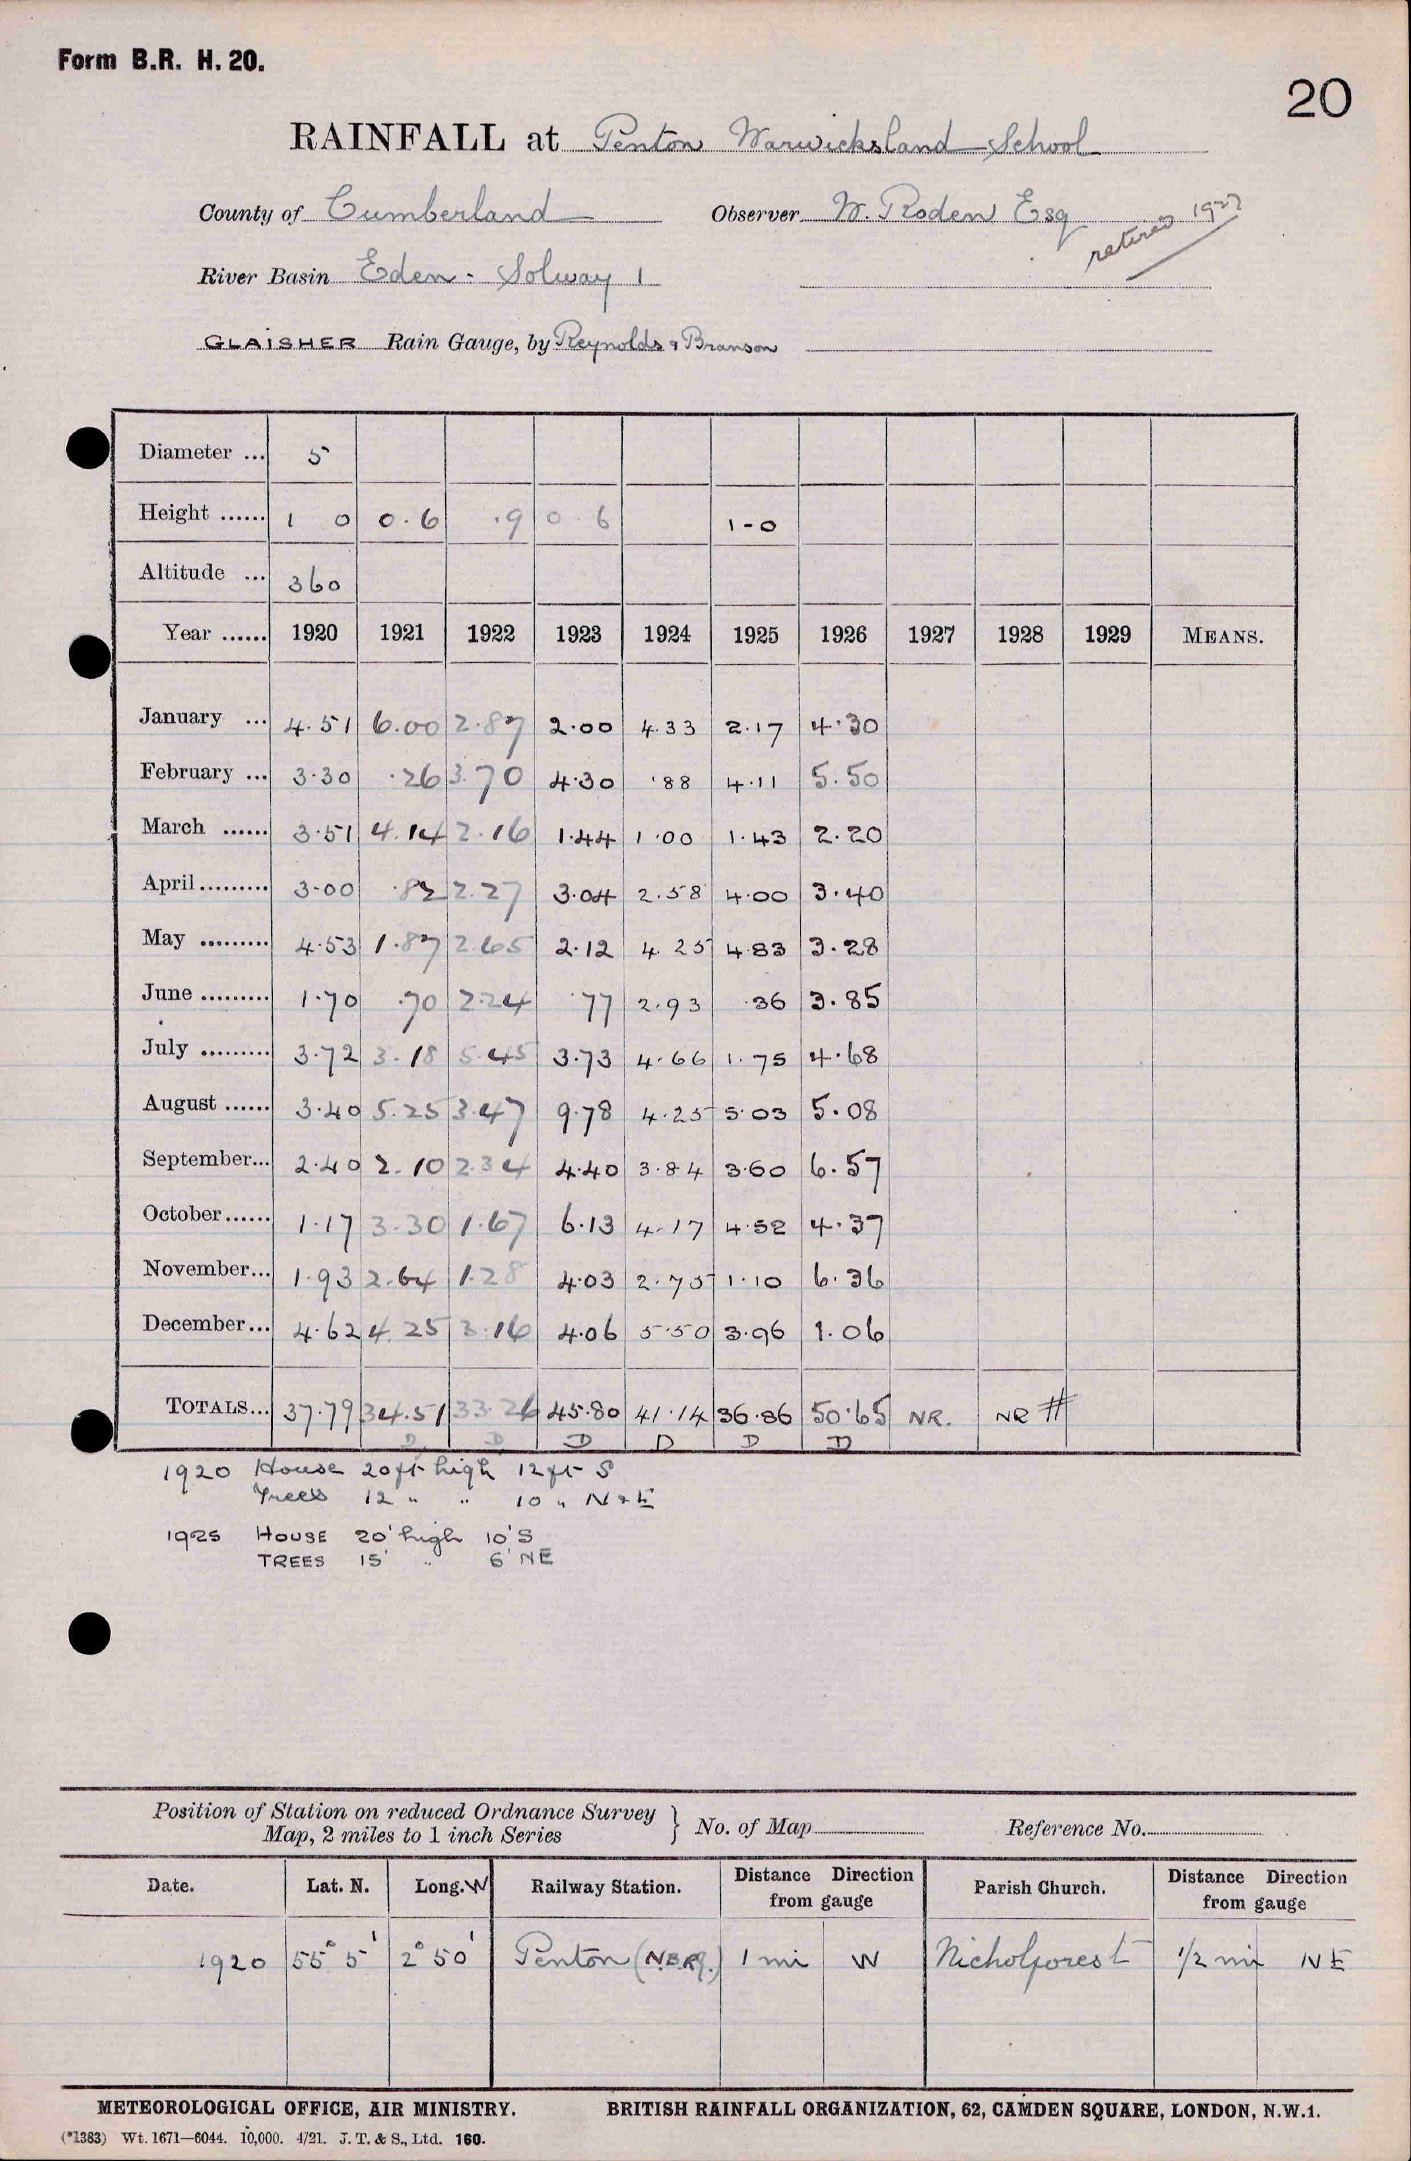 Form B.R. H. 20.
20
RAINFALL at Penton Warwicksland School
County of Cumberland Observer W. Roden Esq retired 1927
River Basin Eden - Solway 1
GLAISHER Rain Gauge, by Reynolds & Branson
Diameter ... 5
Height ...... 1 0 0.6 .9 0 6 1-0
Altitude ... 360
Year ...... 1920 1921 1922 1923 1924 1925 1926 1927 1928 1929 MEANS.
January ... 4.51 6.00 2.87 2.00 4.33 2.17 4.30
February ... 3.30 .26 3.70 4.30 .88 4.11 5.50
March ...... 3.51 4.14 2.16 1.44 1.00 1.43 2.20
April ......... 3.00 .82 2.27 3.04 2.58 4.00 3.40
May ......... 4.53 1.87 2.65 2.12 4.25 4.83 3.28
June ......... 1.70 .70 2.24 .77 2.93 .36 3.85
July ......... 3.72 3.18 5.45 3.73 4.66 1.75 4.68
August ...... 3.40 5.25 3.47 9.78 4.25 5.03 5.08
September... 2.40 2.10 2.34 4.40 3.84 3.60 6.57
October ...... 1.17 3.30 1.67 6.13 4.17 4.52 4.37
November... 1.93 2.64 1.28 4.03 2.75 1.10 6.36
December... 4.62 4.25 3.16 4.06 5.50 3.96 1.06
TOTALS... 37.79 34.51 33.26 45.80 41.14 36.86 50.65 NR. NR #
D D D D D D
1920 House 20ft high 12ft S
Trees 12 " " 10 " N & E
1925 HOUSE 20' high 10' S
TREES 15' " 6' NE
Position of Station on reduced Ordnance Survey
Map, 2 miles to 1 inch Series } No. of Map Reference No.
Date. Lat. N. Long. W Railway Station. Distance Direction from gauge Parish Church. Distance Direction from gauge
1920 55° 5' 2° 50' Penton (N.B.R.) 1 mi W Nicholforest 1/2 mi NE
METEOROLOGICAL OFFICE, AIR MINISTRY. BRITISH RAINFALL ORGANIZATION, 62, CAMDEN SQUARE, LONDON, N.W.1.
(*1383) Wt. 1671—6044. 10,000. 4/21. J. T. & S., Ltd. 160.